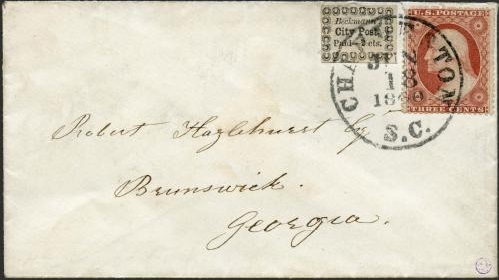 Beckmann's
City Post.
Paid—2 cts.
U.S. POSTAGE
THREE CENTS
CHARLESTON
S.C.
Robert Hazlehurst Esq
Brunswick.
Georgia.